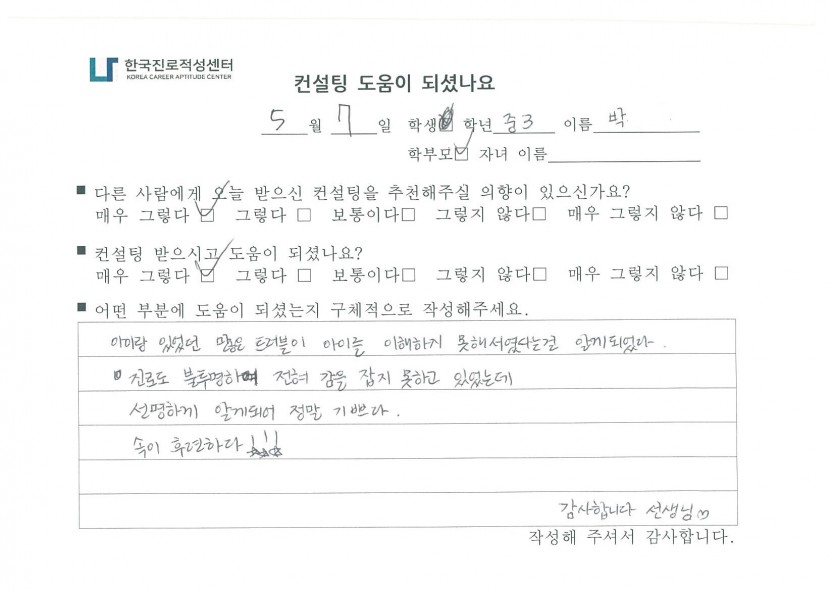 한국진로적성센터
KOREA CAREER APTITUDE CENTER
컨설팅 도움이 되셨나요
5 월 7 일 학생 학년 중3 이름 박
학부모☑ 자녀 이름
■ 다른 사람에게 오늘 받으신 컨설팅을 추천해주실 의향이 있으신가요?
매우 그렇다 ☑ 그렇다 □ 보통이다□ 그렇지 않다□ 매우 그렇지 않다 □
■ 컨설팅 받으시고 도움이 되셨나요?
매우 그렇다 ☑ 그렇다 □ 보통이다□ 그렇지 않다□ 매우 그렇지 않다 □
■ 어떤 부분에 도움이 되셨는지 구체적으로 작성해주세요.
아이랑 있었던 많은 트러블이 아이를 이해하지 못해서였다는걸 알게되었다.
진로도 불투명하여 전혀 감을 잡지 못하고 있었는데
선명하게 알게되어 정말 기쁘다.
속이 후련하다!!!
감사합니다 선생님♡
작성해 주셔서 감사합니다.